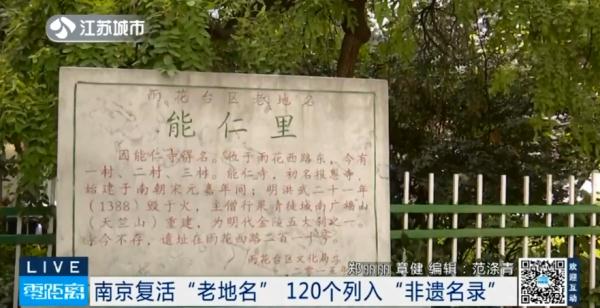 江苏城市
雨花台区老地名
能仁里
因能仁寺得名。位于雨花西路东，今有
一村、二村、三村。能仁寺，初名报恩寺，
始建于南朝宋元嘉年间；明洪武二十一年
（1388）毁于火，主僧行果青徙城南广福山
（天竺山）重建，为明代金陵五大刹之一。
今不存，遗址在雨花西路二百一十号。
雨花台区文化局立
二〇一五年
郑 章健 编辑：范涤青
LIVE
零距离
南京复活“老地名” 120个列入“非遗名录”
欢迎互动